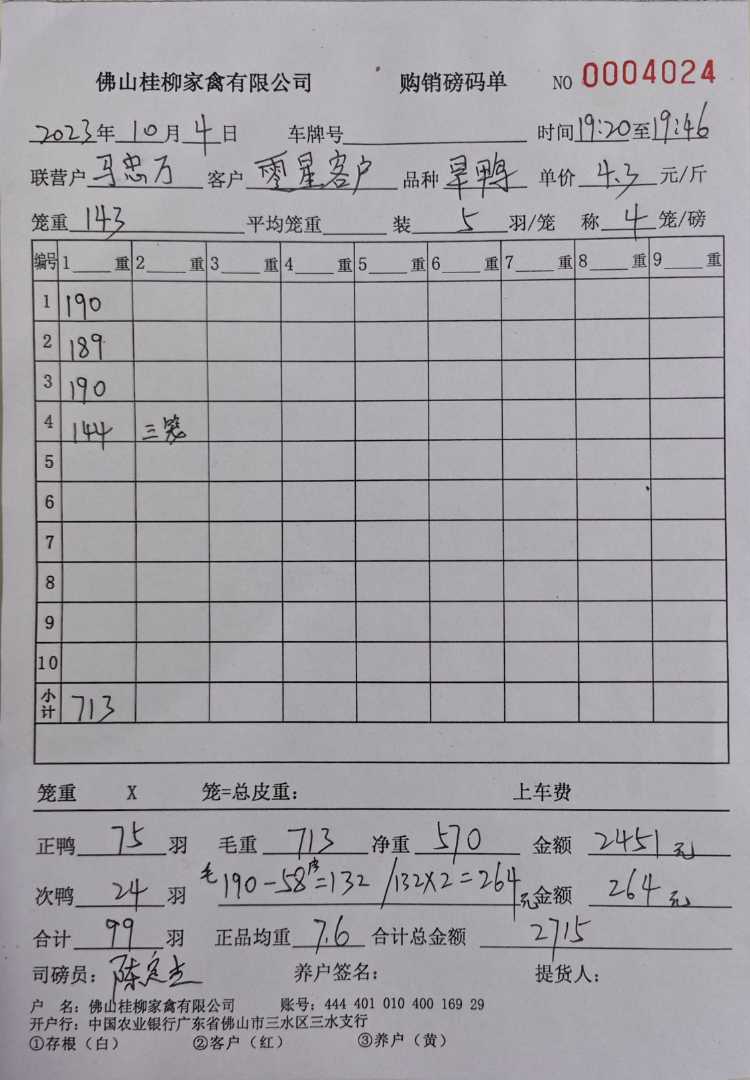 佛山桂柳家禽有限公司 购销磅码单 NO 0004024
2023年 10月 4日 车牌号 时间19:20至19:46
联营户 冯忠万 客户 零星客户 品种 旱鸭 单价 4.3 元/斤
笼重 143 平均笼重 装 5 羽/笼 称 4 笼/磅
编号 1 重 2 重 3 重 4 重 5 重 6 重 7 重 8 重 9 重
1 190
2 189
3 190
4 144 三笼
5
6
7
8
9
10
小计 713
笼重 X 笼=总皮重: 上车费
正鸭 75 羽 毛重 713 净重 570 金额 2451元
次鸭 24 羽 毛190-58皮=132 /132X2=264元 金额 264元
合计 99 羽 正品均重 7.6 合计总金额 2715
司磅员: 陈 养户签名: 提货人:
户 名: 佛山桂柳家禽有限公司 账号: 444 401 010 400 169 29
开户行: 中国农业银行广东省佛山市三水区三水支行
①存根(白) ②客户(红) ③养户(黄)